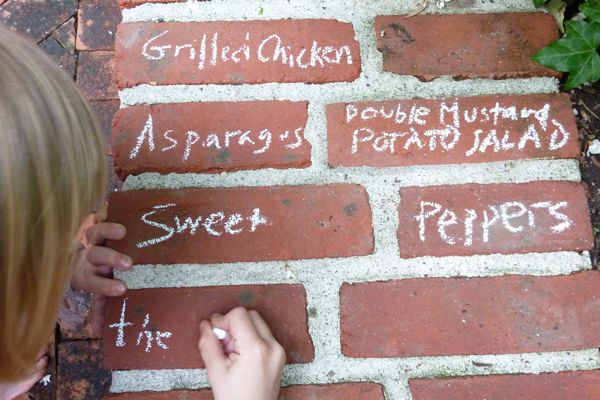 Grilled Chicken
Asparagus
Double Mustard
POTATO SALAD
Sweet Peppers
tire